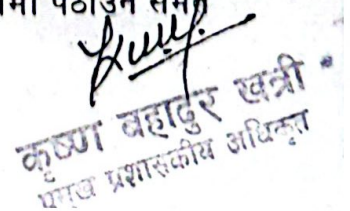 पठाउन
कृष्ण बहादुर खत्री
प्रमुख प्रशासकीय अधिकृत